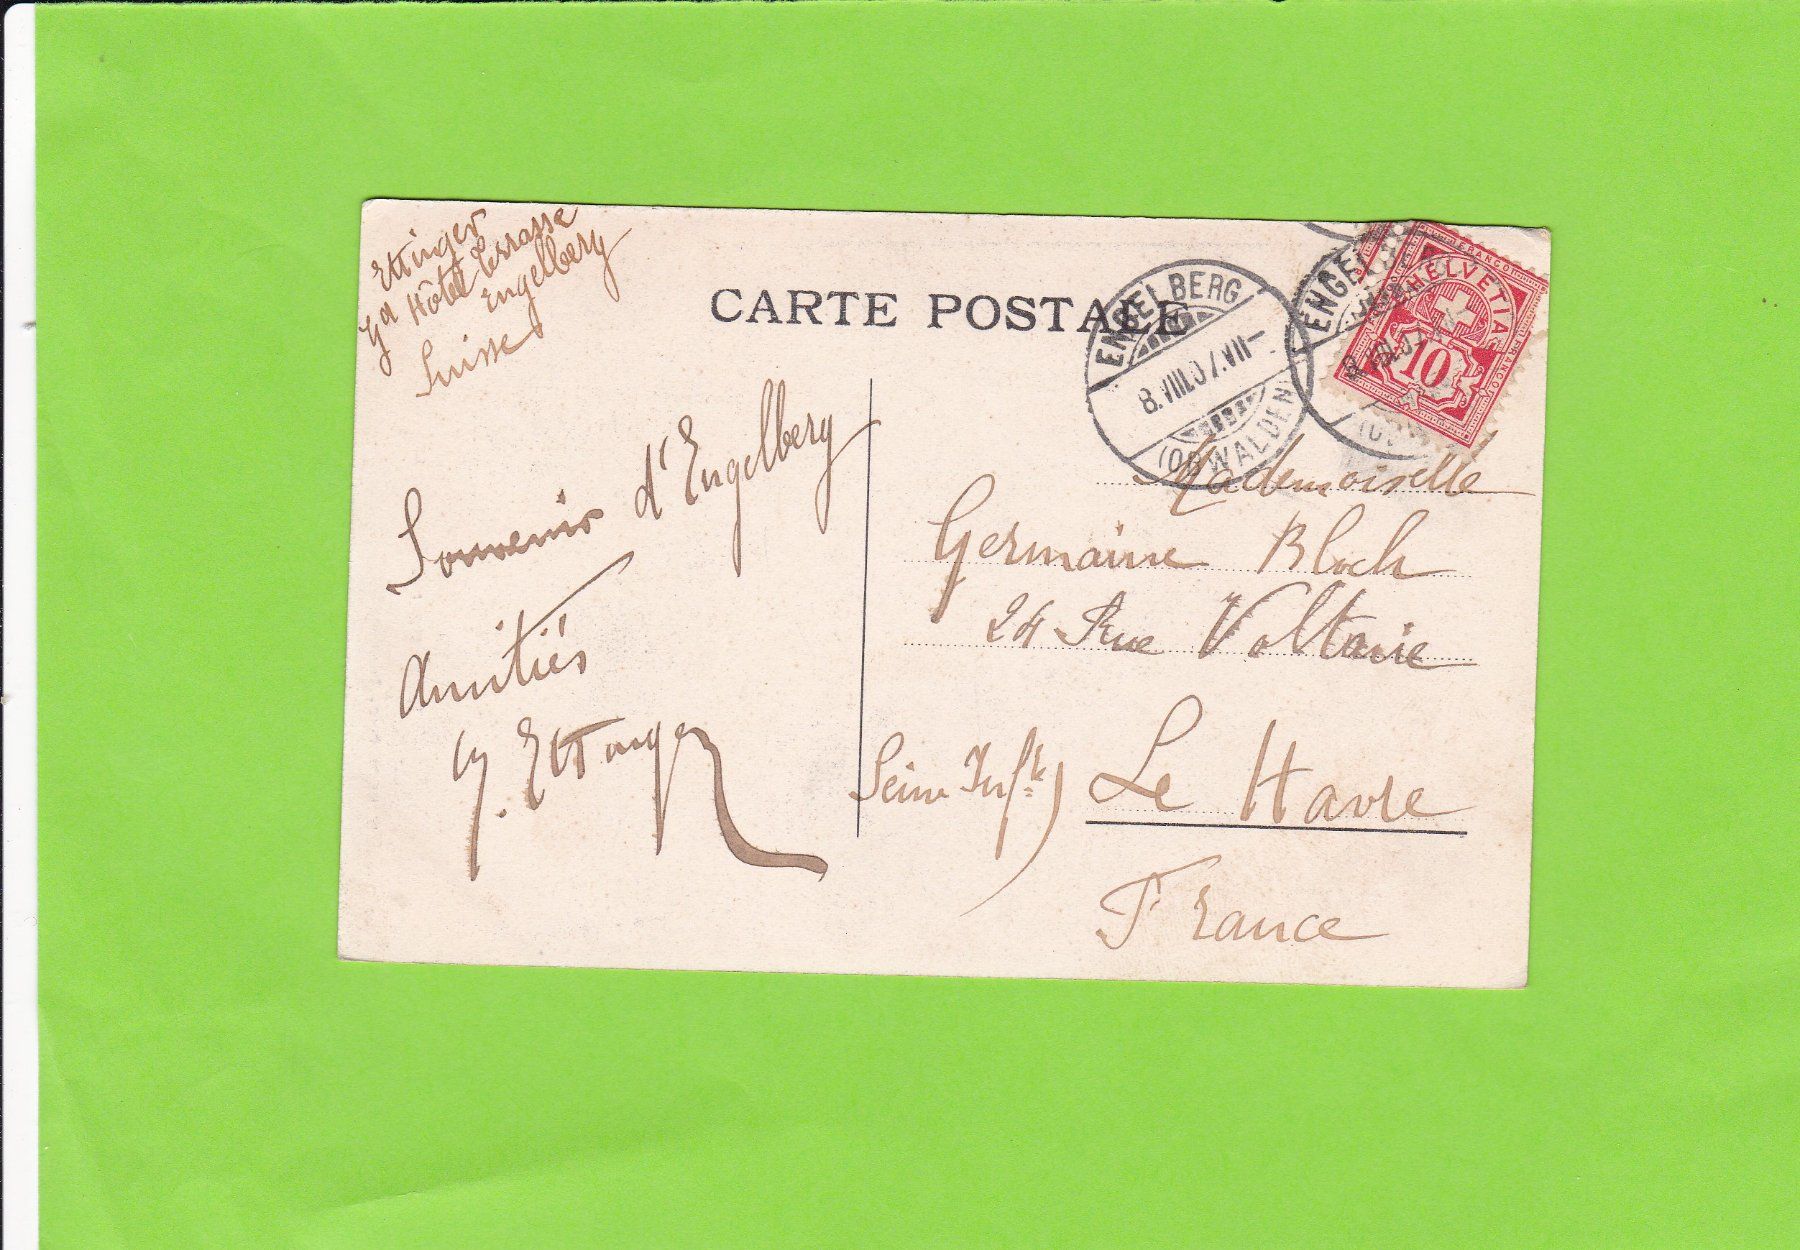 Ettinger
Gd Hôtel Terrasse
Engelberg
Suisse
CARTE POSTALE
ENGELBERG
8.VIII.07.VII—
(OBWALDEN)
ENGELBERG
8.VIII.07
(OBW
HELVETIA
FRANCO
FRANCO
10
Souvenir d'Engelberg
Amitiés
Ettinger
Mademoiselle
Germaine Bloch
24 Rue Voltaire
Seine Infre) Le Havre
France